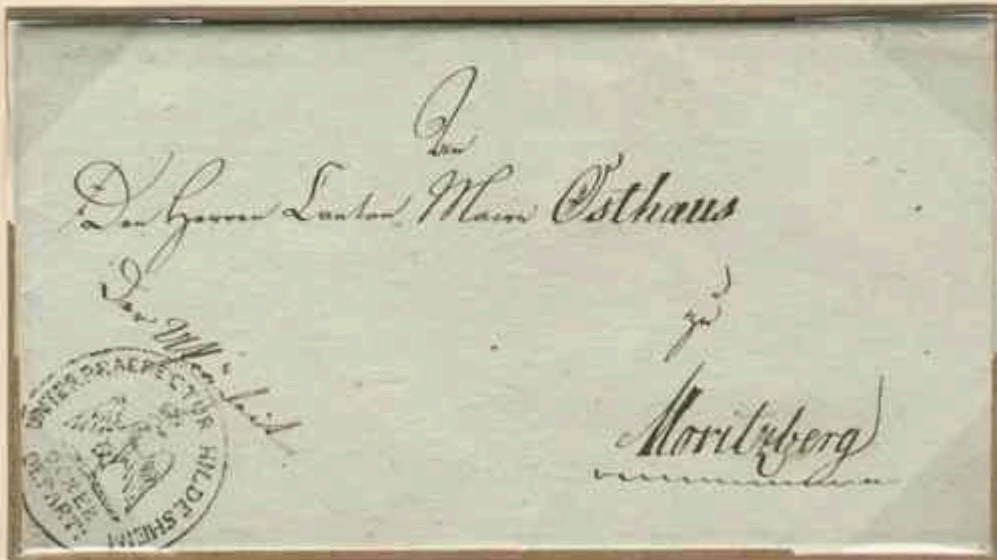 An
Den Herren Canton Maire Osthaus
zu
Moritzberg
Der
UNTERPRAEFECTUR HILDESHEIM
OCKER
DEPART: